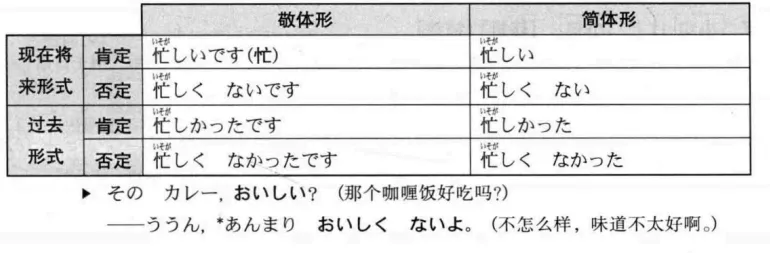 敬体形 简体形
现在将来形式 肯定 忙しいです(忙) 忙しい
否定 忙しく ないです 忙しく ない
过去形式 肯定 忙しかったです 忙しかった
否定 忙しく なかったです 忙しく なかった
▶ その カレー, おいしい? (那个咖喱饭好吃吗?)
——ううん, *あんまり おいしく ないよ。(不怎么样，味道不太好啊。)